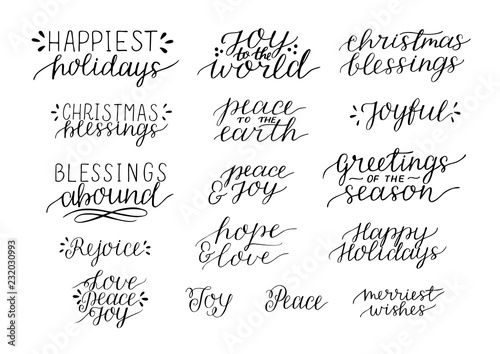 HAPPIEST
holidays
Joy
to the
world
christmas
blessings
CHRISTMAS
blessings
peace
TO THE
earth
Joyful
BLESSINGS
abound
peace
& Joy
Greetings
OF THE
season
Rejoice
hope
& love
Happy
Holidays
Love
Peace
Joy
Joy
Peace
merriest
wishes
Adobe Stock | #232030993